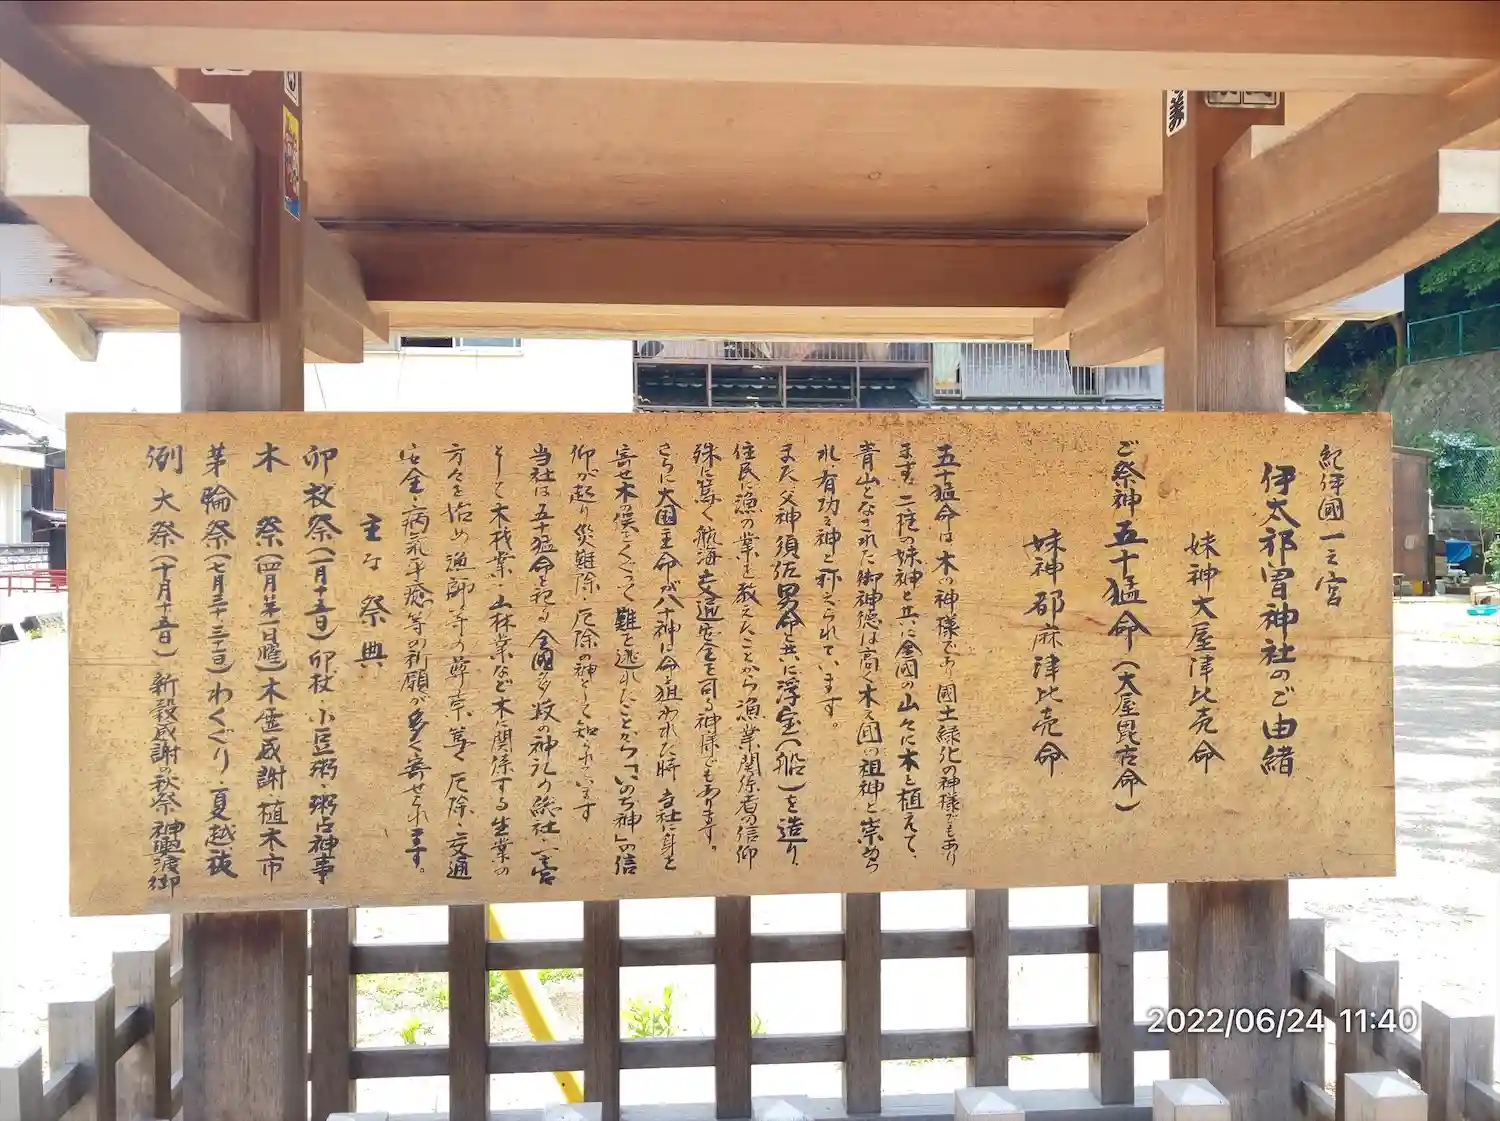 紀伊國一之宮
伊太祁曽神社のご由緒
妹神大屋津比売命
ご祭神 五十猛命(大屋毘古命)
妹神都麻津比売命
五十猛命は木の神様であり國土緑化の神様でもあり
ます。二柱の妹神と共に全國の山々に木を植えて、
青山となされた御神徳は高く木之國の祖神と崇めら
れ、有功之神と称えられています。
また父神須佐男命と共に浮宝(船)を造り、
住民に漁の業を教えたことから漁業関係者の信仰
殊に篤く航海交通安全を司る神様でもあります。
さらに大国主命が八十神に命を狙われた時、当社に身を
寄せ木の俣をくぐって難を逃れたことから「いのち神」の信
仰が起り災難除、厄除の神として知られています
当社は五十猛命を祀る全國多数の神社の総社、一之宮
として木材業、山林業など木に関係する生業の
方々を始め漁師等の尊崇篤く厄除・交通
安全・病気平癒等の祈願が多く寄せられます。
主な祭典
卯杖祭(一月十五日)卯杖・小豆粥・粥占神事
木 祭(四月第一日曜)木霊感謝 植木市
茅輪祭(七月三十・三十一日)わくぐり・夏越祓
例大祭(十月十五日)新穀感謝の秋祭 神輿渡御
2022/06/24 11:40